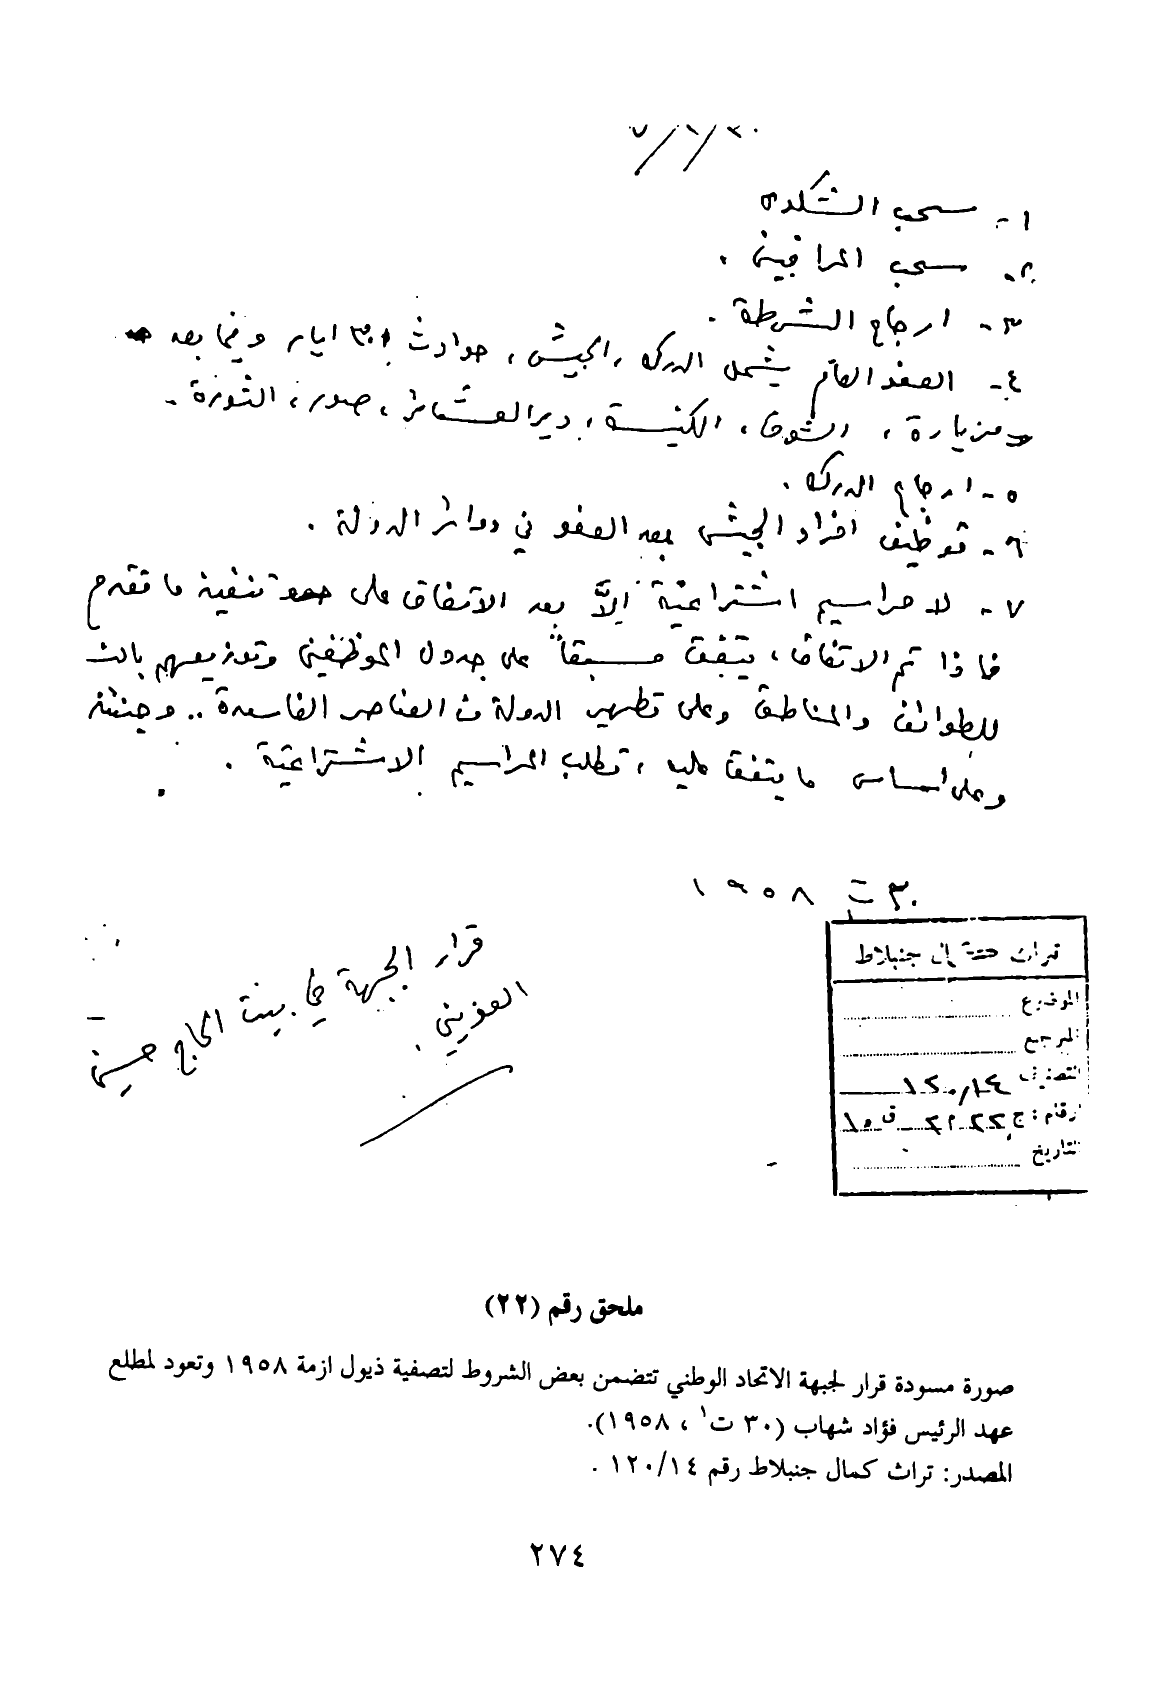 ١- سحب الشكوى
٢- سحب المرافقين .
٣- ارجاع الشرطة .
٤- العفو العام يشمل الدرك ، الجيش ، حوادث ٣٠ ايار وفيما بعد
مزيارة ، الشوف ، الكنيسة ، دير العشائر ، صور ، الثورة .
٥- ارجاع الدرك .
٦- توظيف افراد الجيش بعد العفو في دوائر الدولة .
٧- لا مراسيم اشتراعية إلاَّ بعد الاتفاق على تنفيذ ما تقدم
فاذا تم الاتفاق ، يتفق مسبقاً على جدول الموظفين وتوزيعهم
للطوائف والمناطق وعلى تطهير الدولة من العناصر الفاسدة ..
وعلى اساس ما يتفق عليه ، تطلب المراسيم الاشتراعية .
٣٠ ت١ ١٩٥٨
قرار الجبهة في بيت الحاج حسين
العويني .
تراث جنبلاط
الموضوع
المرجع
التصنيف ١٢٠/١٤
التاريخ
ملحق رقم (٢٢)
صورة مسودة قرار لجبهة الاتحاد الوطني تتضمن بعض الشروط لتصفية ذيول ازمة ١٩٥٨ وتعود لمطلع
عهد الرئيس فؤاد شهاب (٣٠ ت١ ، ١٩٥٨).
المصدر: تراث كمال جنبلاط رقم ١٢٠/١٤ .
٢٧٤